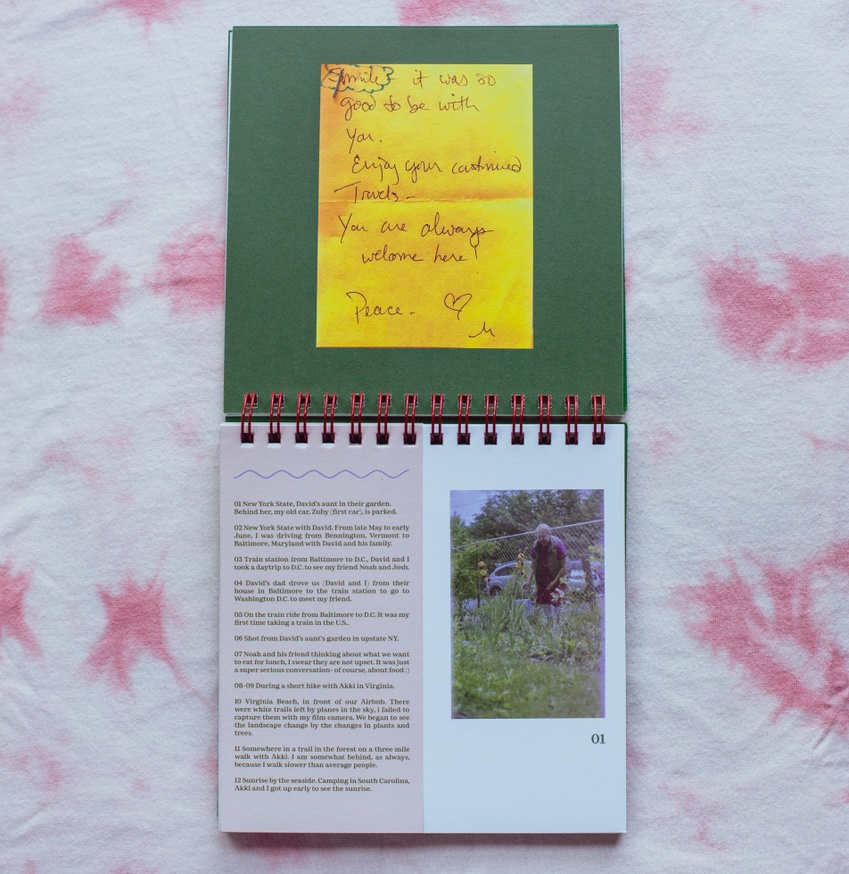 Smile - it was so
good to be with
you.
Enjoy your continued
Travels -
You are always
welcome here!
Peace. - ♡
01 New York State, David's aunt in their garden.
Behind her, my old car, Zuby (first car), is parked.
02 New York State with David. From late May to early
June, I was driving from Bennington, Vermont to
Baltimore, Maryland with David and his family.
03 Train station from Baltimore to D.C., David and I
took a daytrip to D.C. to see my friend Noah and Josh.
04 David's dad drove us (David and I) from their
house in Baltimore to the train station to go to
Washington D.C. to meet my friend.
05 On the train ride from Baltimore to D.C. It was my
first time taking a train in the U.S..
06 Shot from David's aunt's garden in upstate NY.
07 Noah and his friend thinking about what we want
to eat for lunch, I swear they are not upset. It was just
a super serious conversation- of course, about food :)
08-09 During a short hike with Akki in Virginia.
10 Virginia Beach, in front of our Airbnb. There
were white trails left by planes in the sky, i failed to
capture them with my film camera. We began to see
the landscape change by the changes in plants and
trees.
11 Somewhere in a trail in the forest on a three mile
walk with Akki. I am somewhat behind, as always,
because I walk slower than average people.
12 Sunrise by the seaside. Camping in South Carolina,
Akki and I got up early to see the sunrise.
01